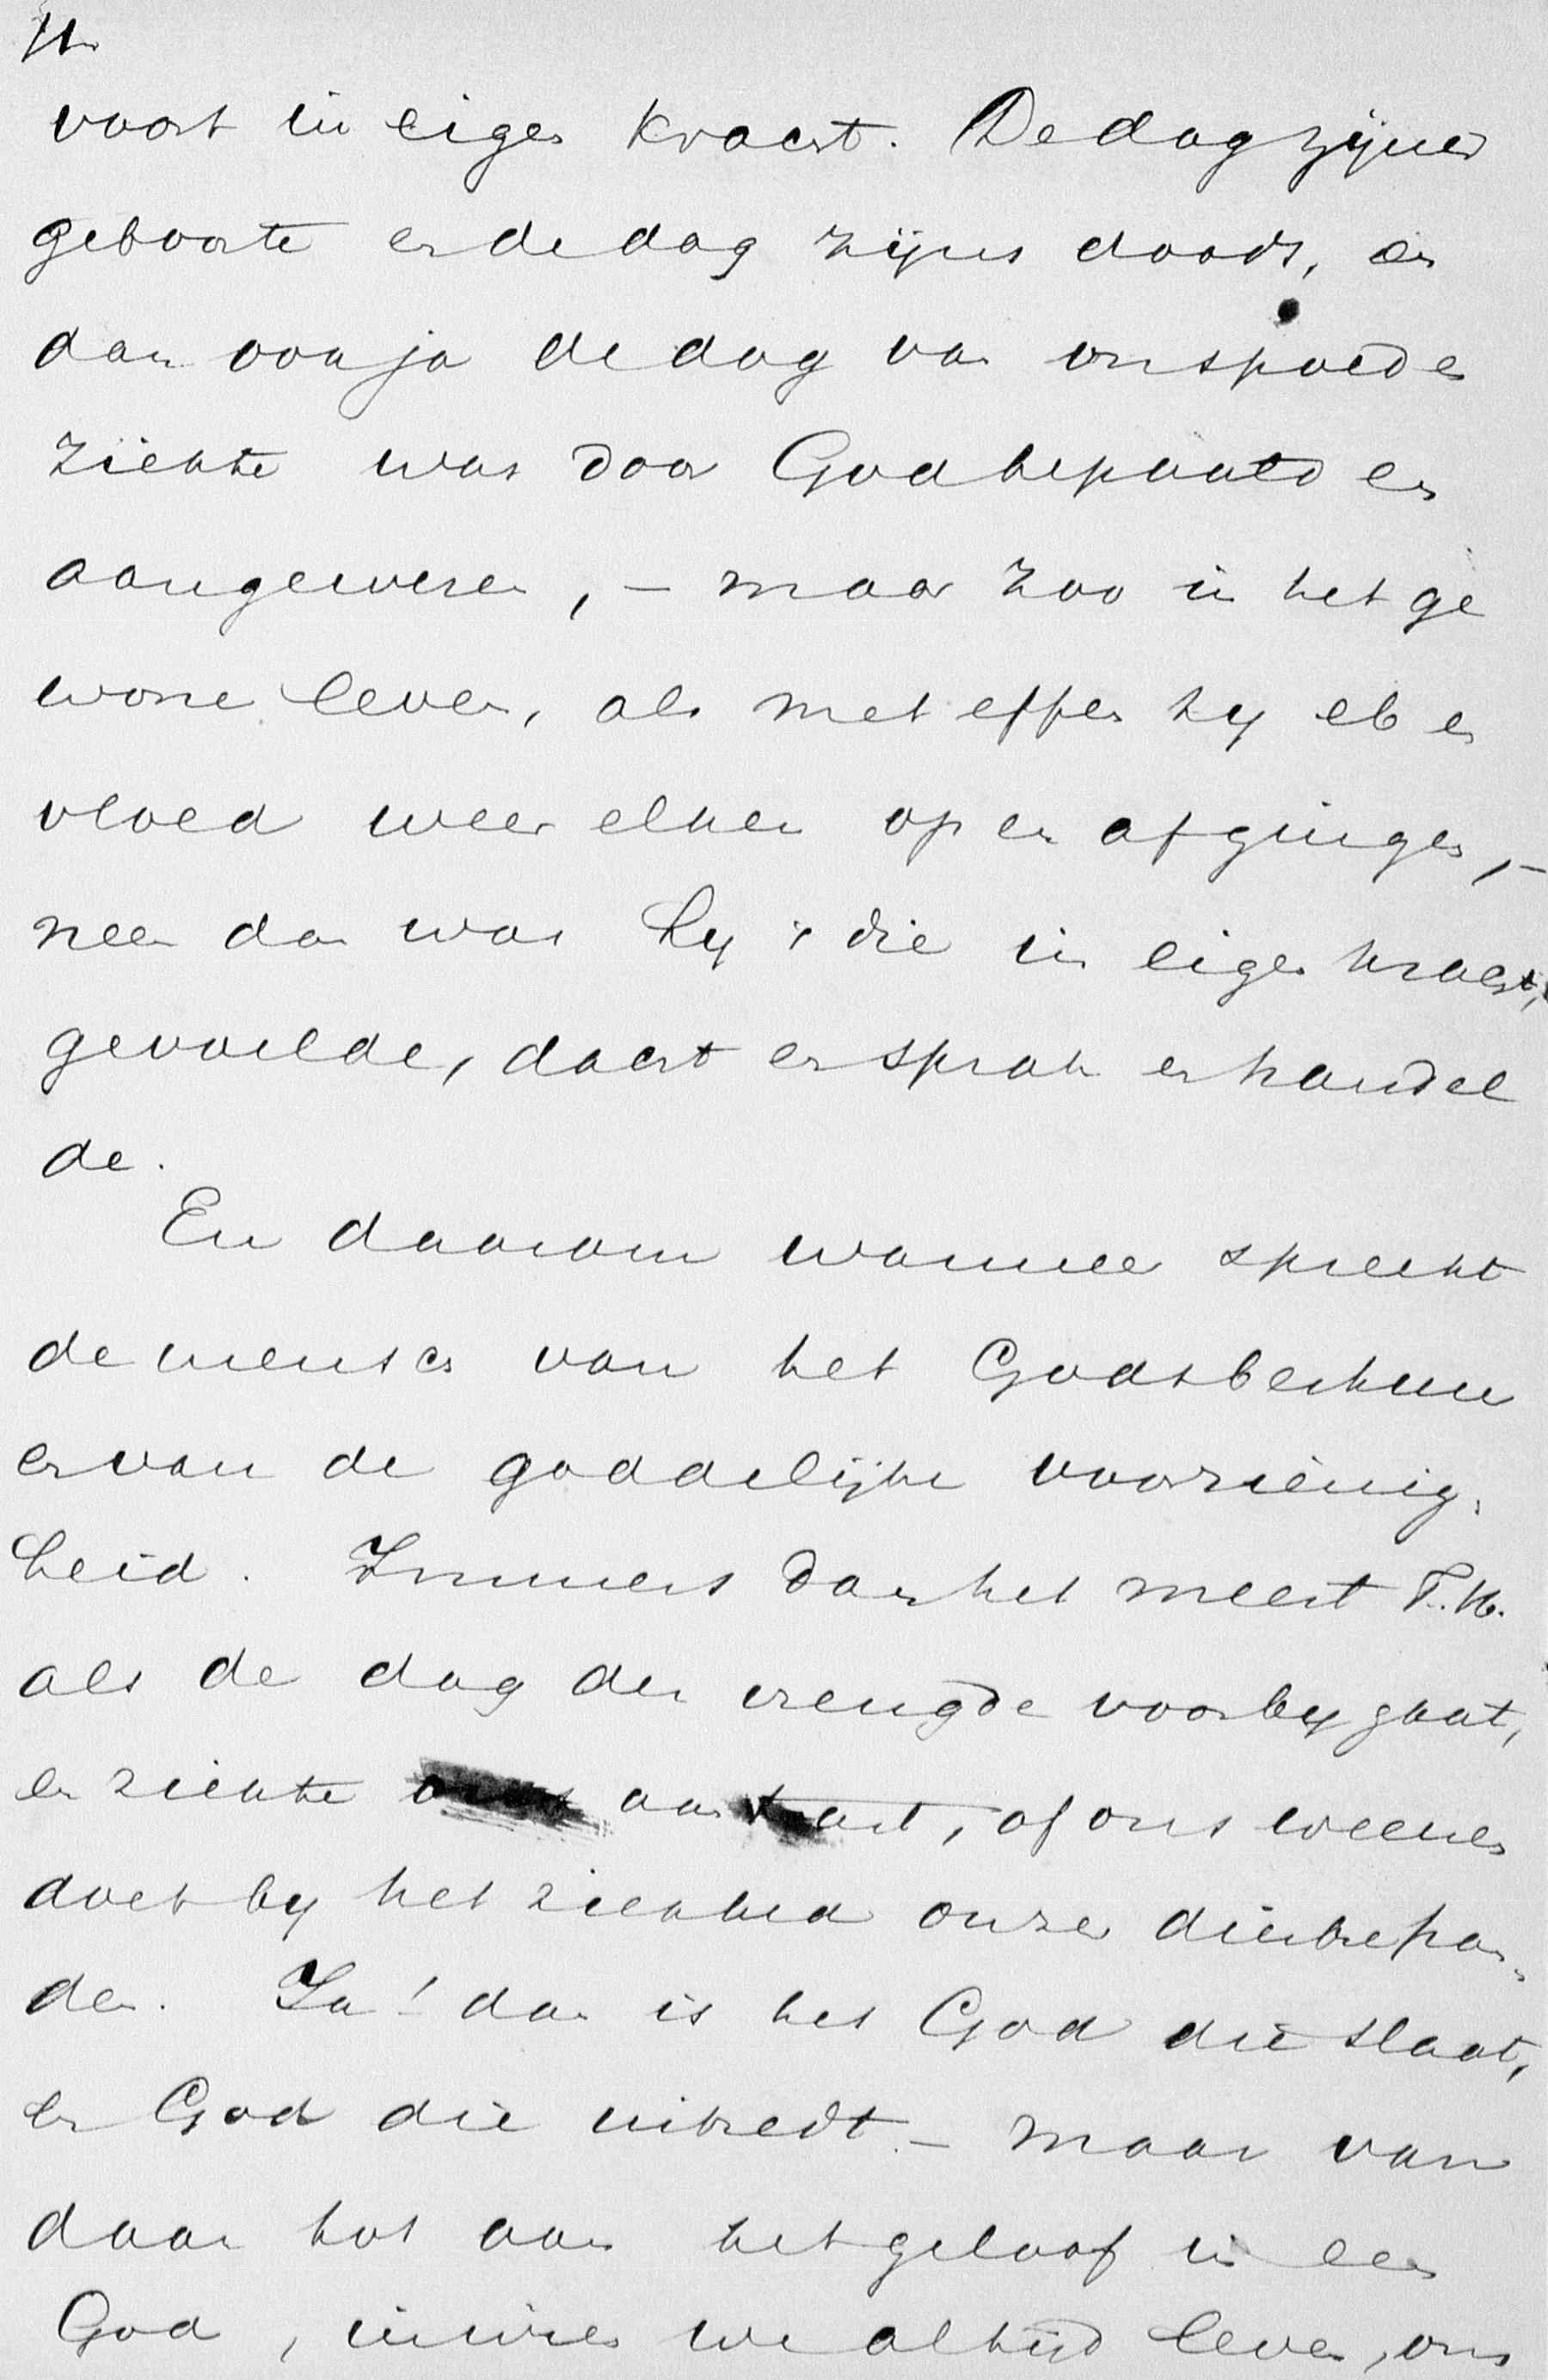 voort in eigen kracht. De dag zijner
geboorte en de dag zijns doods, en
dan ook ja de dag van onspoed en
ziekte was door God bepaald en
aangewezen, – maar zoo in het ge
wone leven, als met effen zij eb en
vloed weer elken op en afgingen, –
neen dan was hij 't die in eigen kracht,
gevoelde, dacht en sprak en handel
de.
En daarom wanneer spreekt
de mensch van het Godsbestuur
en van de goddelijke voorzienig-
heid. Immers dan het meest T.H.
als de dag der vreugde voorby gaat,
en ziekte aantast, of ons weenen
doet by het ziekbed onzer dierbre pan-
den. Ja! dan is het God die slaat,
en God die uitredt – maar van
daar tot aan het geloof in een
God, in wien we altijd leven, ons